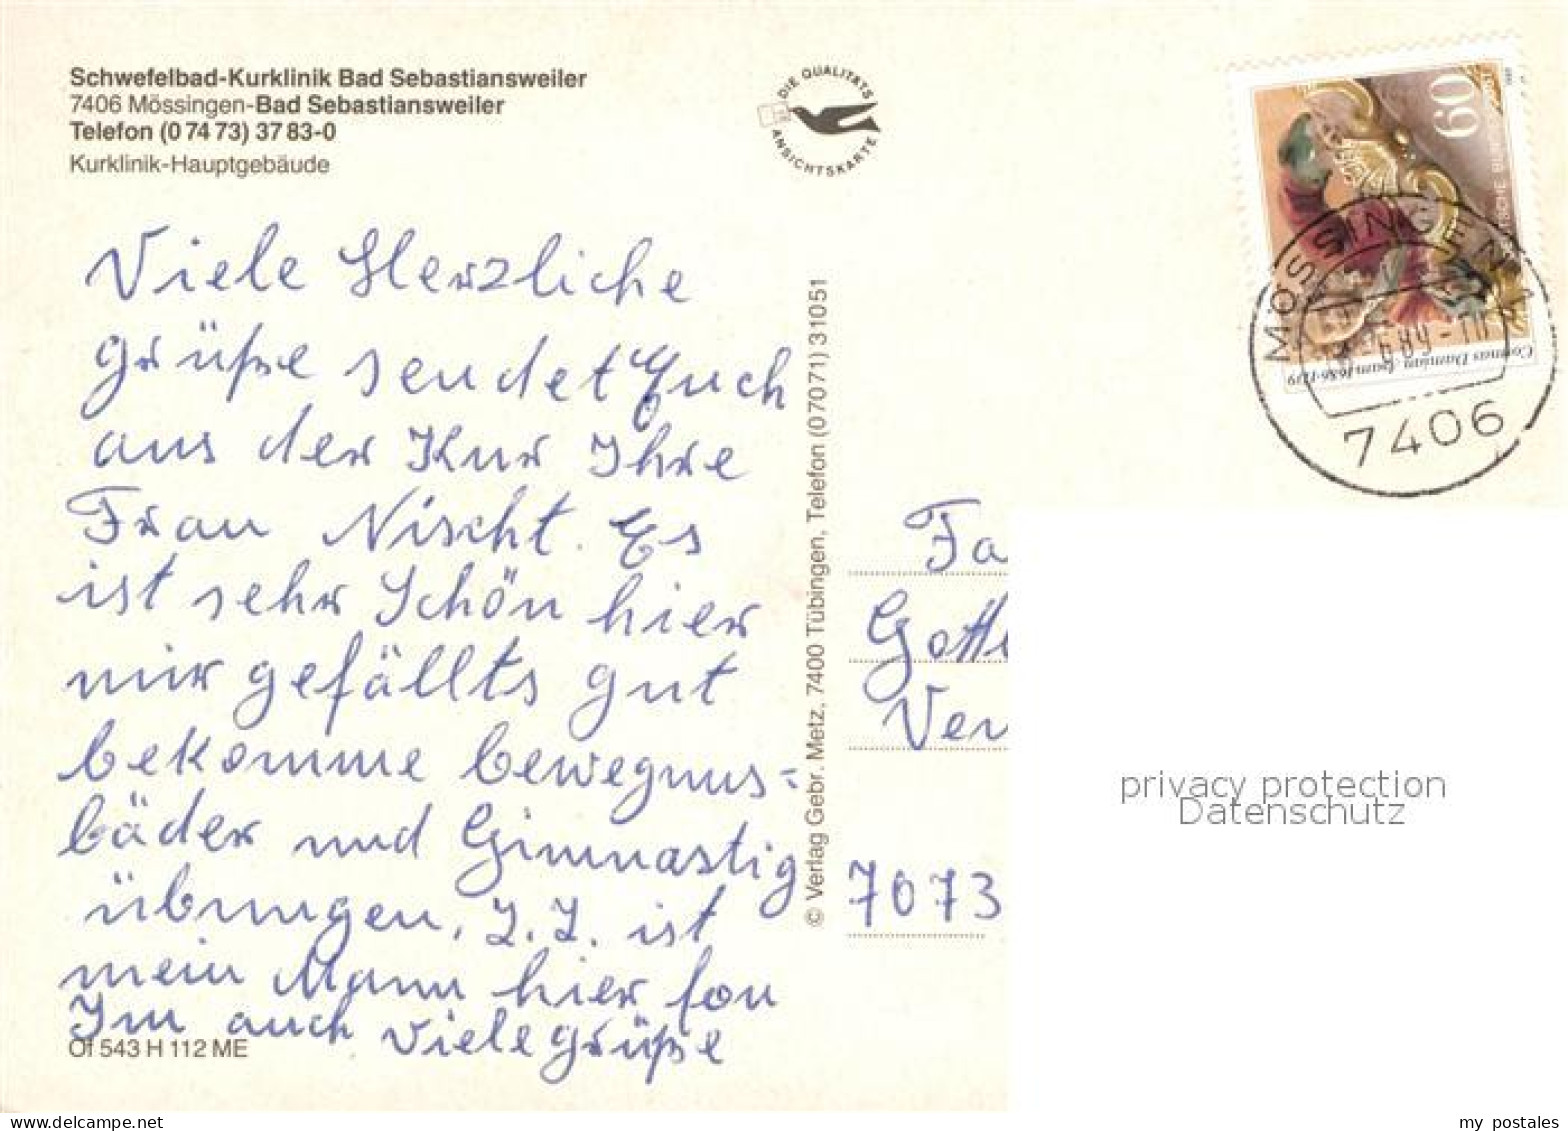 Schwefelbad-Kurklinik Bad Sebastiansweiler
7406 Mössingen-Bad Sebastiansweiler
Telefon (0 74 73) 37 83-0
Kurklinik-Hauptgebäude
DIE QUALITÄTS
ANSICHTSKARTE
60
Cosmas Damian Asam 1686-1739
MÖSSINGEN 1
7406
Viele Herzliche
Grüße sendet Euch
aus der Kur Ihre
Frau Nischt. Es
ist sehr Schön hier
mir gefällts gut
bekomme bewegnus=
bäder und Gimnastig
übungen, Z.Z. ist
mein Mann hier fon
Im auch viele Grüße
Of 543 H 112 ME
© Verlag Gebr. Metz, 7400 Tübingen, Telefon (0 70 71) 3 10 51
Fa
Gotte
Ver
7073
privacy protection
Datenschutz
delcampe.net
my_postales